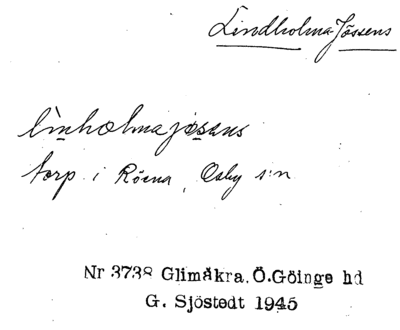 Lindholma-Jössens
linhɷlmajøsens
torp i Röena, Osby s:n
Nr 3738 Glimåkra. Ö.Göinge hd
G. Sjöstedt 1945